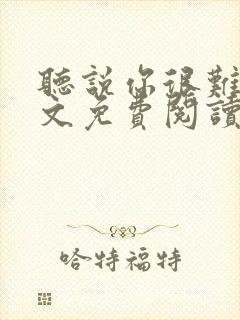 聽說你很難
文免費閱讀
哈特福特